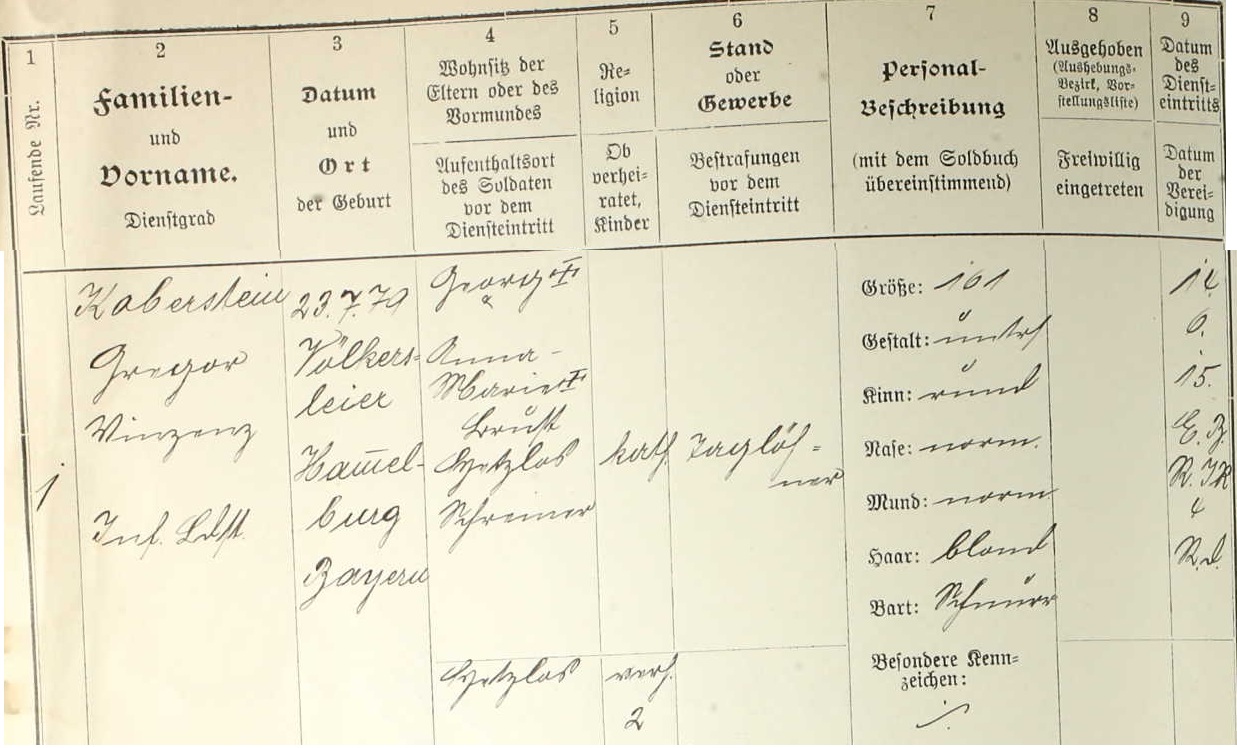 1
Laufende Nr.
2
Familien-
und
Vorname.
Dienstgrad
3
Datum
und
Ort
der Geburt
4
Wohnsitz der
Eltern oder des
Vormundes
Aufenthaltsort
des Soldaten
vor dem
Diensteintritt
5
Re=
ligion
Ob
verhei=
ratet,
Kinder
6
Stand
oder
Gewerbe
Bestrafungen
vor dem
Diensteintritt
7
Personal-
Beschreibung
(mit dem Soldbuch
übereinstimmend)
8
Ausgehoben
(Aushebungs-
Bezirk, Vor-
stellungsliste)
Freiwillig
eingetreten
9
Datum
des
Dienst=
eintritts
Datum
der
Verei=
digung
1
Kaberstein
Gregor
Vinzenz
Inf. Ldst.
23.7.79
Völkers-
leier
Ham̄el-
burg
Bayern
Georg
Anna-
Marie
Schreiner
kath.
verh.
2
Taglöh=
ner
Größe: 161
Gestalt: unters
Kinn: rund
Nase: norm.
Mund: norm
Haar: blond
Bart: Schnurr
Besondere Kenn=
zeichen:
14.
6.
15.
R.d.